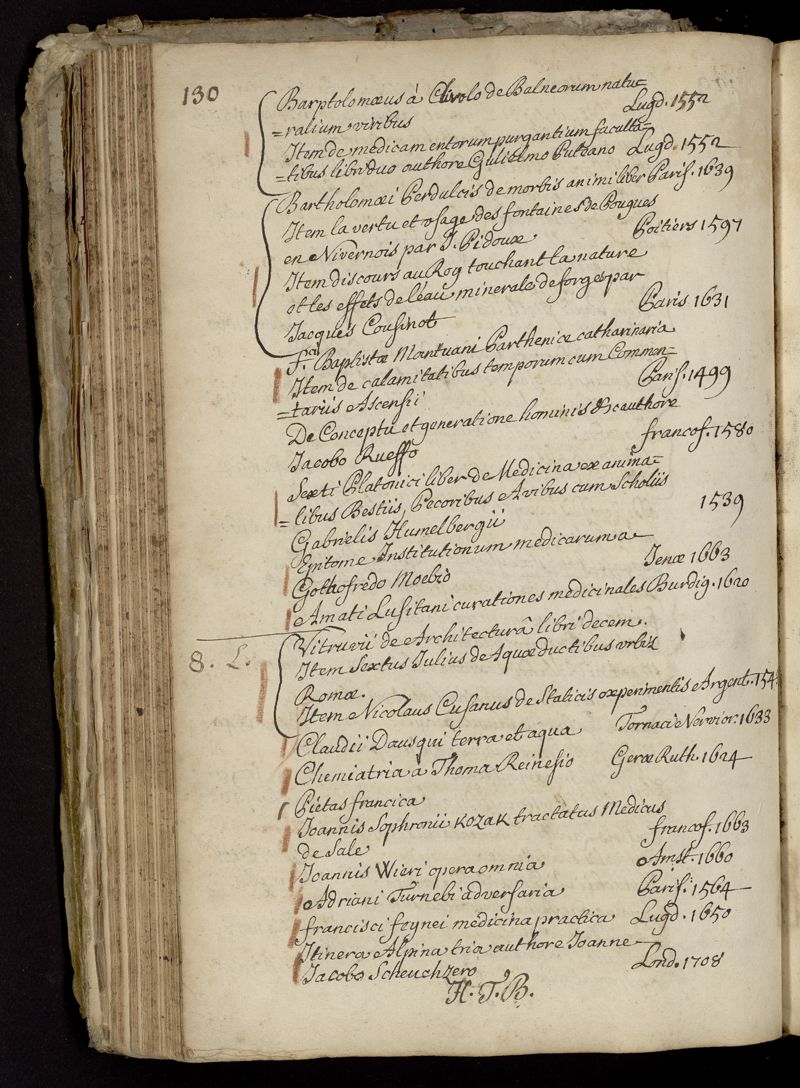 130
Barptolomæus á Clivolo de Balneorum natu=
=ralium viribus Lugd. 1552
Item de medicamentorum purgantium faculta=
=tibus libri duo authore Gulielmo Puteano Lugd. 1552
Bartholomæi Perdulcis de morbis animi liber Paris. 1639
Item la vertu et usage des fontaines de Pougues
en Nivernois par J. Pidoux Poitiers 1597
Item discours au Roy touchant la nature
et les effets de l'éau minerale de forges par
Jacques Cousinot Paris 1631
F. Baptistæ Mantuani Parthenice catharinaria
Item de calamitatibus temporum cum Commen=
=tariis Ascensii Paris. 1499
De Conceptu et generatione hominis &c authore
Jacobo Rueffo francof. 1580
Sexti Platonici liber de Medicina ex anima=
=libus Bestiis, Pecoribus Avibus cum Scholiis
Gabrielis Humelbergii 1539
Epitome Institutionum medicarum a
Gothofredo Moebio Jenæ 1663
Amati Lusitani curationes medicinales Burdig. 1620
8. L.
Vitruvii de Architecturâ libri decem.
Item Sextus Iulius de Aquæductibus urbis
Romæ.
Item Nicolaus Cusanus de Staticis experimentis Argent. 154
Claudii Dausqui terra et aqua Tornaci Nervior. 1633
Chemiatria a Thoma Reinesio Geræ Ruth. 1624
Pietas francica
Joannis Sophronii KOZAK tractatus Medicus
de Sale francof. 1663
Joannis Wieri opera omnia Amst. 1660
Adriani Turnebi adversaria Paris. 1564
francisci feynei medicina practica Lugd. 1650
Itinera Alpina tria authore Joanne
Jacobo Scheuchzero Lond. 1708
H. T. B.